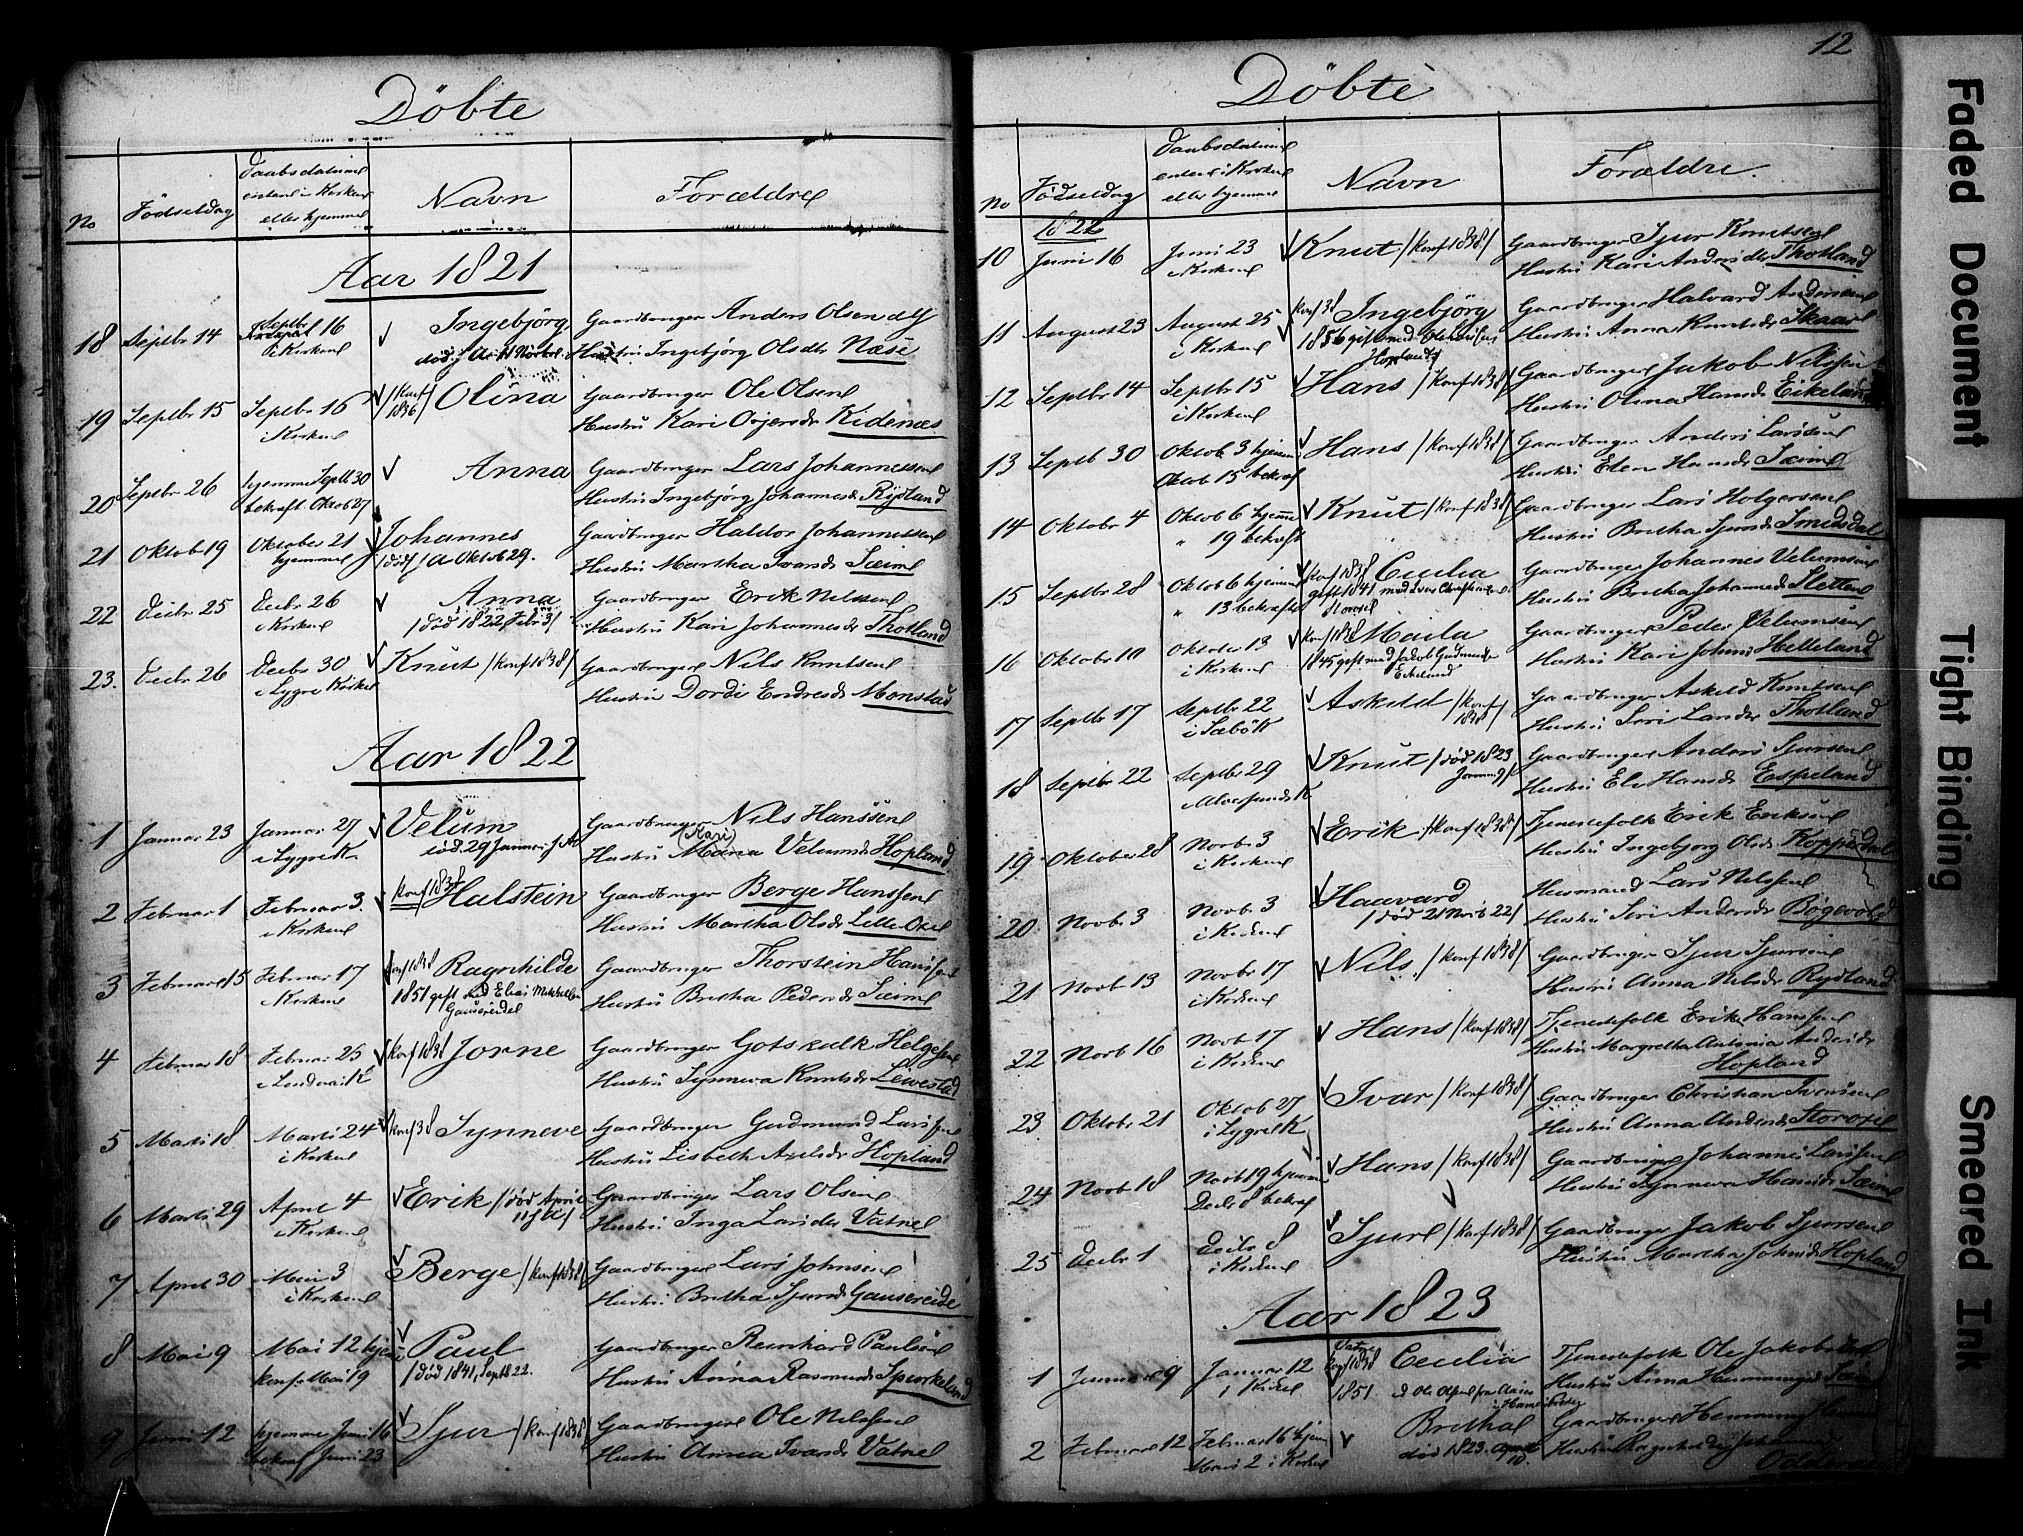 Döbte
No
Födselsdag
Daabsdatum
enten i Kirken
eller hjemme
Navn
Forældre
Aar 1821
18 Septbr 14 Septbr 16 i Kirken Ingebjörg Gaardbruger Anders Olsen
Hustru Ingebjörg Olsdtr Næse
19 Septbr 15 Septbr 16 i Kirken /Konf 1836/ Olina Gaardbruger Ole Olsen
Hustru Kari Brjersdr Kidenæs
20 Septbr 26 hjemme Septb 30 Anna Gaardbruger Lars Johannessen
bekraft. Oktob 27 Hustru Ingebjörg Johannesdr Rydland
21 Oktob 19 Oktober 21 hjemme Johannes Gaardbruger Haldor Johannessen
/död /A Oktob 29. Hustru Martha Ivarsdr Sæim
22 Decbr 25 Decbr 26 i Kirken Anna Gaardbruger Erik Nelssen
/död 1822 Febr 3/ Hustru Kari Johannesdr Thotland
23. Decbr 26 Decbr 30 i Lygre Kirke Knut /konf 1838/ Gaardbruger Nils Knutsen
Hustru Dordi Endresdr Monstad
Aar 1822
1 Januar 23 Januar 27 i Lygre K Velum Gaardbruger Nils Hanssen
död 29 Januar (Kari) Hustru Maria Velumsdr Hopland
2 Februar 1 Februar 3. i Kirken konf 1838 Halstein Gaardbruger Berge Hanssen
Hustru Martha Olsdr Lille Oxe
3 Februar 15 Februar 17 i Kirken konf 1838 Ragnhilde Gaardbruger Thorstein Hanssen
1851 gift med Elias Mikkelsen Gausereidet Hustru Britha Pedersdr Sæim
4 Februar 18 Februar 25 i Lindaas K konf 1838 Jorne Gaardbruger Gotskalk Helgesen
Hustru Synneva Knutsdr Levestad
5 Marts 18 Marts 24 i Kirken konf 38 Synneve Gaardbruger Gudmund Larssen
Hustru Lisbeth Axelsdr Hopland
6 Marts 29 April 4 i Kirken Erik /död April 11 Gaardbruger Lars Olsen
Hustru Inga Larsdr Vatne
7 April 30 Mai 3 i Kirken Berge /konf 1838/ Gaardbruger Lars Johnsen
Hustru Britha Sjursdr Gausereide
8 Mai 9 Mai 12 hjem Paul Gaardbruger Reinhard Paulsen
konf. Mai 19 /död 1841, Sept 22. Hustru Anna Rasmusdr Spurkeland
9 Juni 12 hjemme Juni 16 Sjur /konf 1838/ Gaardbruger Ole Nelssen
bekraf Juni 23 Hustru Anna Ivarsdr Vatne
12
Döbte
No
Födselsdag
Daabsdatum
enten i Kirken
eller hjemme
Navn
Forældre.
1822
10 Juni 16 Juni 23 i Kirken Knut /konf 1838/ Gaardbruger Sjur Knutsen
Hustru Kari Andersdr Thotland
11 August 23 August 25 i Kirken konf 38 Ingebjörg Gaardbruger Halvard Andersen
1856 gift med Hopland Hustru Anna Knutsdr Skaar
12 Septbr 14 Septbr 15 i Kirken Hans /konf 1838/ Gaardbruger Jakob Nilssen
Hustru Olina Hansdr Eikeland
13 Septb 30 Oktob 3 hjemme Hans /konf 1838/ Gaardbruger Anders Larssen
Oktob 15 bekraf Hustru Elen Hansdr Sæim
14 Oktobr 4 Oktob 6 hjemme Knut /konf 1838/ Gaardbruger Lars Holgersen
" 19 bekraft Hustru Britha Sjursdr Smedsdal
15 Septbr 28 Oktob 6 hjemme konf 1838 Cecilia Gaardbruger Johannes Velumsen
" 13 bekraft gift 1841 med Iver Christiansen Storoxe Hustru Britha Johannesd Sletten
16 Oktobr 10 Oktobr 13 i Kirken konf 1838 Maila Gaardbruger Peder Velumsen
1845 gift med Jakob Gudmunds Eikeland Hustru Kari Johnsd Helleland
17 Septbr 17 Septbr 22 i Sæbö K Askeld /konf 1838/ Gaardbruger Askeld Knutsen
Hustru Siri Larsdr Thotland
18 Septbr 22 Septbr 29 i Alversunds K Knut /död 1823 Januar 9/ Gaardbruger Anders Sjursen
Hustru Eli Hansdr Espeland
19 Oktober 28 Novbr 3 i Kirken Erik /konf 1838/ Tjenestefolk Erik Eriksen
Hustru Ingebjörg Olsdr Koppedal
20 Novbr 3 Novbr 3 i Kirken Haavard Husmand Lars Nelssen
/död 21 Novb 22/ Hustru Siri Andersdr Bögevold
21 Novbr 13 Novbr 17 i Kirken Nils /konf 1838/ Gaardbruger Sjur Sjursen
Hustru Anna Nelsdr Rydland
22 Novbr 16 Novbr 17 i Kirken Hans /konf 1838/ Tjenestefolk Erik Hanssen
Hustru Margretha Antonia Andersdr
Hopland
23 Oktobr 21 Oktob 27 i Lygre K Ivar /konf 1838/ Gaardbruger Christian Iversen
Hustru Anna Andersdr Storoxe
24 Novbr 18 Novb 19 hjem Hans /konf 1838/ Gaardbruger Johannes Larssen
Decbr 8 bekraf Hustru Synneva Hansdr Sæim
25 Decbr 1 Decbr 8 i Kirken Sjur /konf 1838/ Gaardbruger Jakob Sjursen
Hustru Martha Johnsdr Hopland
Aar 1823
1 Januar 9 Januar 12 i Kirken konf 1838 Cecilia Tjenestefolk Ole Jakobsen
1851 Hustru Anna Hemmingsd Sæim
2 Februar 12 Februar 16 hjem Britha Gaardbruger Hemming
Mars 2 i Kirken död 1823. April 10. Hustru Ragnhild
Faded Document
Tight Binding
Smeared Ink